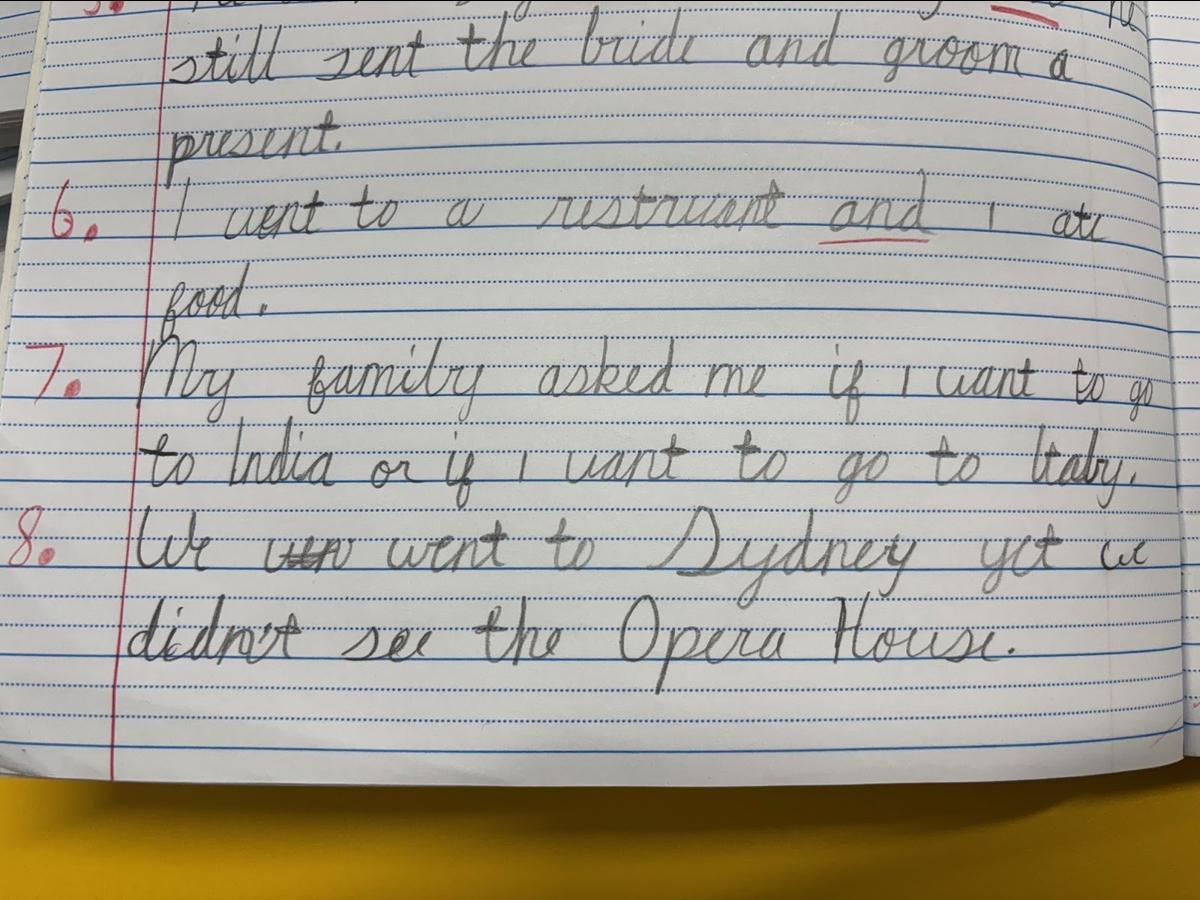 he
still sent the bride and groom a
present.
6. I went to a restruant and I ate
food.
7. My family asked me if I want to go
to India or if I want to go to Italy.
8. We went to Sydney yet we
didn't see the Opera House.